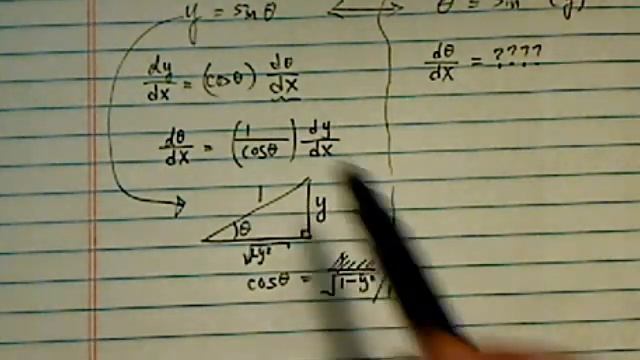 y = sinθ ⟷ θ = sin (y)
dy/dx = (cosθ) dθ/dx
dθ/dx = ????
dθ/dx = (1/cosθ) dy/dx
1
y
θ
√1-y²
cosθ = √1-y²/1